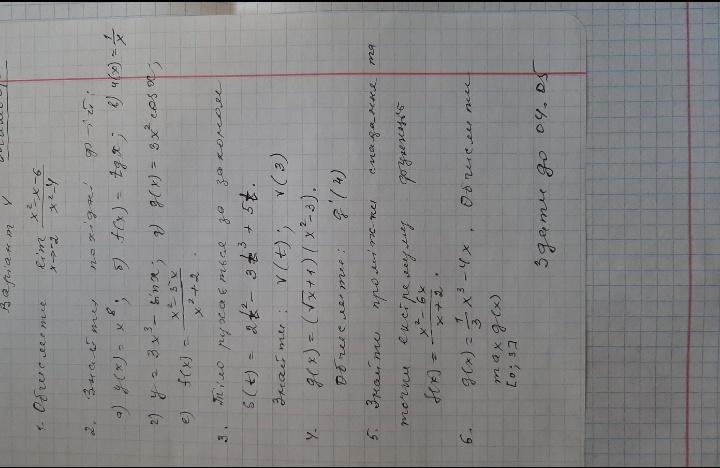 Варіант V
1. Обчислити lim x→-2 x²-x-6 / x²-4
2. Знайти похідні ф-ій:
а) y(x) = x⁸; б) f(x) = tgx; в) u(x) = 1/x
г) y = 3x³ - sinx; д) g(x) = 3x² cosx;
е) f(x) = x²-5x / x²+2.
3. Тіло рухається за законом
S(t) = 2t² - 3t³ + 5t.
Знайти: v(t); v(3)
4. g(x) = (√x+1)(x²-3).
Обчислити: g'(4)
5. Знайти проміжки спадання та
точки екстремуму функції
f(x) = x²-6x / x+2.
6. g(x) = 1/3 x³ - 4x. Обчислити
max g(x)
[0; 3]
Здати до 04.05